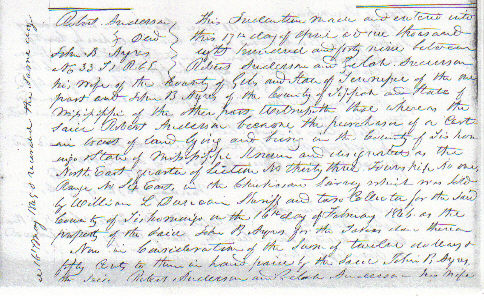 Robert Anderson } This Indenture made and entered into
} Deed } this 17th day of April AD one thousand
John B Ayres } eight hundred and forty nine between
No 33 T1 R6E } Robert Anderson and Zelah Anderson
his wife of the County of Giles and State of Tennessee of the one
part and John B Ayres of the County of Tippah and State of
Mississippi of the other part, Witnesseth that whereas the
Said Robert Anderson became the purchaser of a Cert
ain tract of land lying and being in the County of Tishom
ingo State of Mississippi Known and designated as the
North East quarter of Section No thirty three Township No one
Range No Six East, in the Chickasaw Survey which was Sold
by William L Duncan Sheriff and tax Collector for the Said
County of Tishomingo on the 16th day of February 1846 as the
property of the Said John B Ayres for the Taxes due thereon
Now in Consideration of the Sum of twelve dollars &
fifty Cents to them in hand paid by the Said John B Ayres
the Said Robert Anderson and Zelah Anderson his wife
May 1849 & recorded the Same day